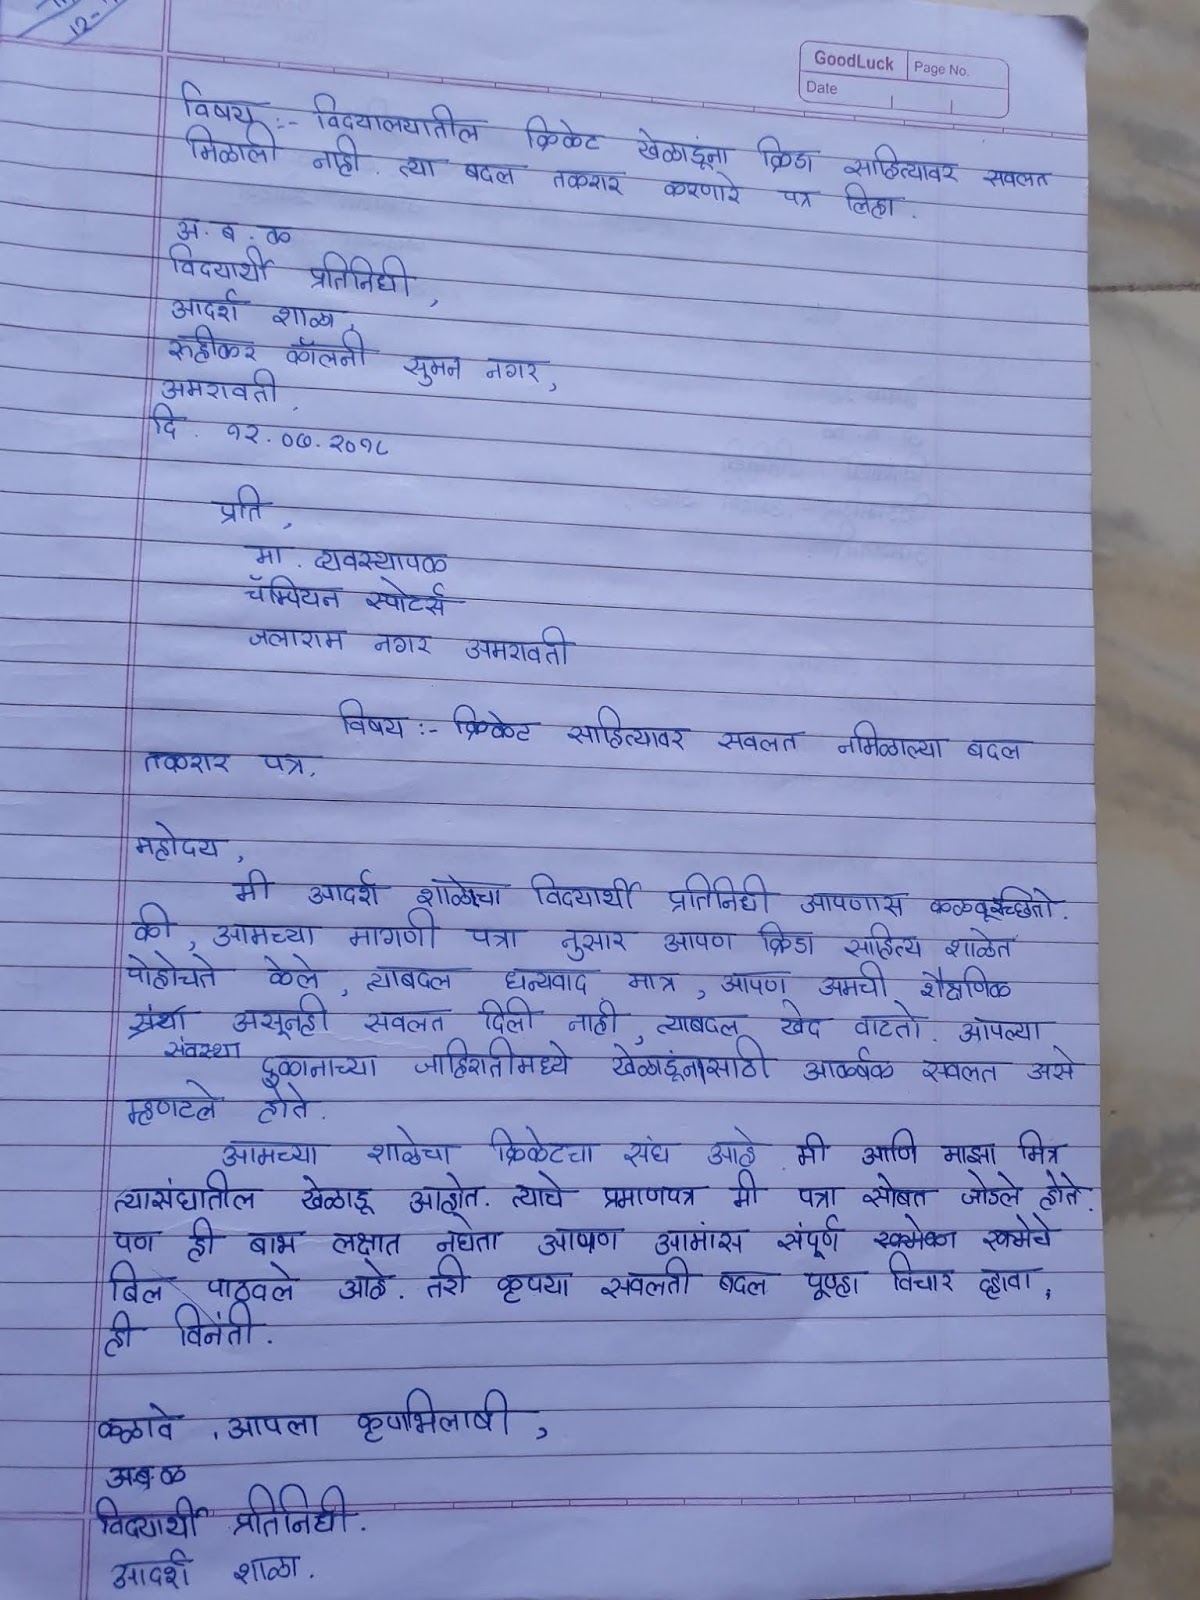 १२-
GoodLuck Page No.
Date
विषय :- विदयालयातील क्रिकेट खेळाडूंना क्रिडा साहित्यावर सवलत
मिळाली नाही. त्या बदल तकरार करणारे पत्र लिहा.
अ. ब. ळ
विदयार्थी प्रतिनिधी,
आदर्श शाळा,
रुहीकर कॉलनी सुमन नगर,
अमरावती.
दि. १२.०७.२०१८
प्रति,
मा. व्यवस्थापक
चॅम्पियन स्पोटर्स
जलाराम नगर अमरावती
विषय :- क्रिकेट साहित्यावर सवलत नमिळाल्या बदल
तकरार पत्र.
महोदय,
मी आदर्श शाळेचा विदयार्थी प्रतिनिधी आपणास कळवूइच्छितो.
की, आमच्या मागणी पत्रा नुसार आपण क्रिडा साहित्य शाळेत
पोहोचते केले, त्याबदल धन्यवाद मात्र, आपण अमची शैक्षणिक
असूनही सवलत दिली नाही, त्याबदल खेद वाटतो. आपल्या
संवस्था
दुकानाच्या जाहिरातीमध्ये खेळाडूंनासाठी आकर्षक सवलत असे
म्हणटले होते.
आमच्या शाळेचा क्रिकेटचा संघ आहे. मी आणि माझा मित्र
त्यासंघातील खेळाडू आहोत. त्याचे प्रमाणपत्र मी पत्रा सोबत जोडले होते.
पण ही बाब लक्षात नघेता आपण आमांस संपूर्ण रक्मेचे
बिल पाठवले आहे. तरी कृपया सवलती बदल पून्हा विचार व्हावा,
ही विनंती.
कळावे, आपला कृपाभिलाषी,
अबळ
विदयार्थी प्रतिनिधी.
आदर्श शाळा.